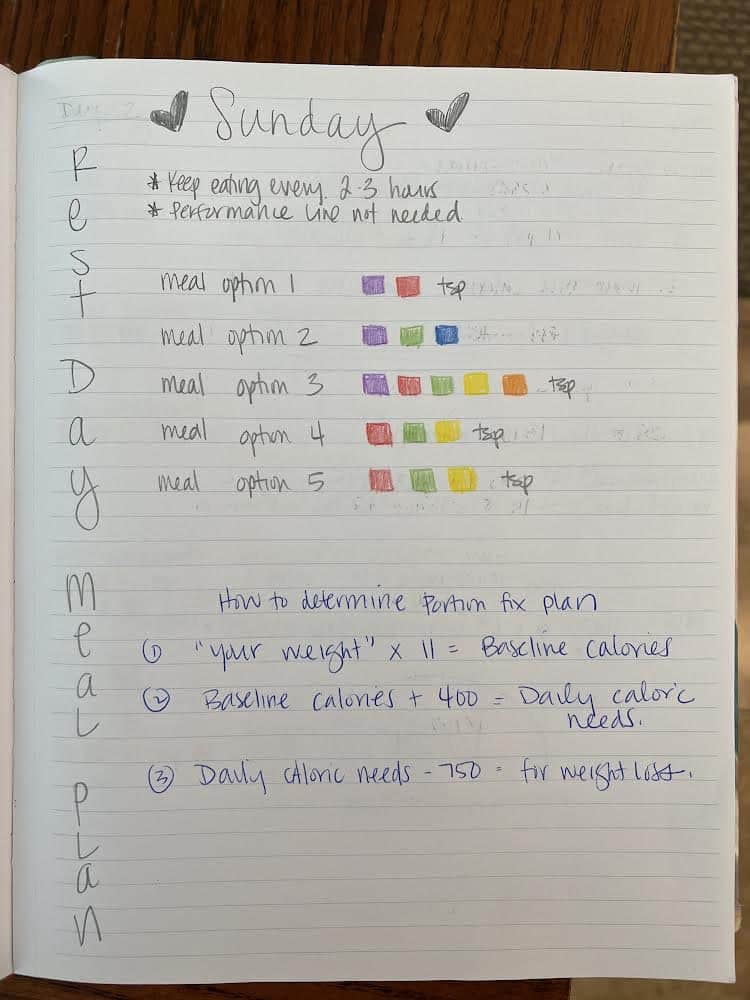 Sunday
Rest Day Meal Plan
* Keep eating every 2-3 hours
* Performance line not needed
meal option 1 tsp
meal option 2
meal option 3 tsp
meal option 4 tsp
meal option 5 tsp
How to determine Portion fix plan
① "your weight" x 11 = Baseline calories
② Baseline calories + 400 = Daily caloric
needs.
③ Daily caloric needs - 750 = for weight loss.